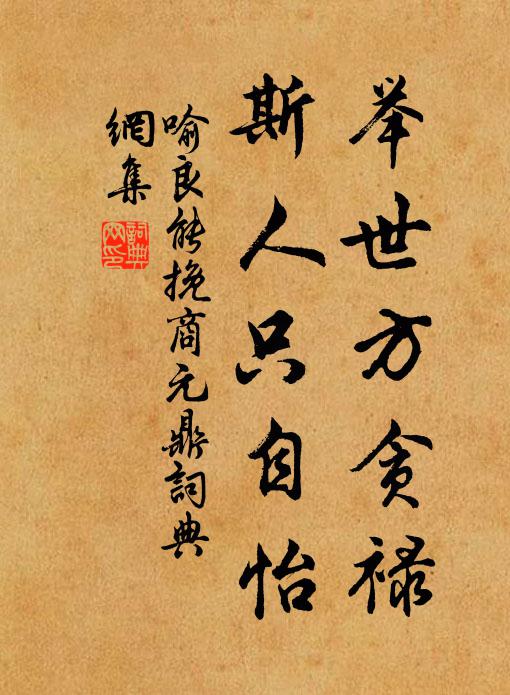 举世方贪禄
斯人只自怡
喻良能挽商元鼎詞典
網集
詞典
网印